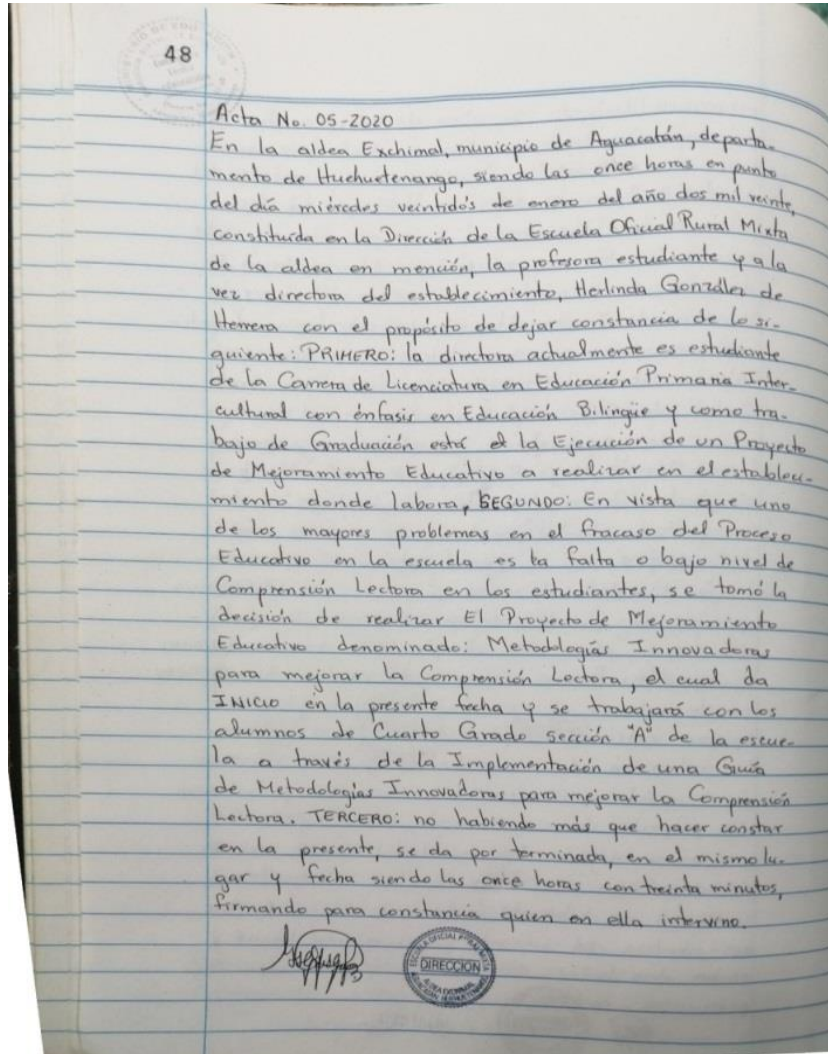 48
Acta No. 05-2020
En la aldea Exchimal, municipio de Aguacatán, departa-
mento de Huehuetenango, siendo las once horas en punto
del día miércoles veintidós de enero del año dos mil veinte,
constituída en la Dirección de la Escuela Oficial Rural Mixta
de la aldea en mención, la profesora estudiante y a la
vez directora del establecimiento, Herlinda González de
Herrera con el propósito de dejar constancia de lo si-
guiente: PRIMERO: la directora actualmente es estudiante
de la Carrera de Licenciatura en Educación Primaria Inter-
cultural con énfasis en Educación Bilingüe y como tra-
bajo de Graduación está la Ejecución de un Proyecto
de Mejoramiento Educativo a realizar en el estableci-
miento donde labora, SEGUNDO: En vista que uno
de los mayores problemas en el fracaso del Proceso
Educativo en la escuela es la falta o bajo nivel de
Comprensión Lectora en los estudiantes, se tomó la
decisión de realizar El Proyecto de Mejoramiento
Educativo denominado: Metodologías Innovadoras
para mejorar la Comprensión Lectora, el cual da
INICIO en la presente fecha y se trabajará con los
alumnos de Cuarto Grado sección "A" de la escue-
la a través de la Implementación de una Guía
de Metodologías Innovadoras para mejorar la Comprensión
Lectora. TERCERO: no habiendo más que hacer constar
en la presente, se da por terminada, en el mismo lu-
gar y fecha siendo las once horas con treinta minutos,
firmando para constancia quien en ella intervino.
DIRECCION